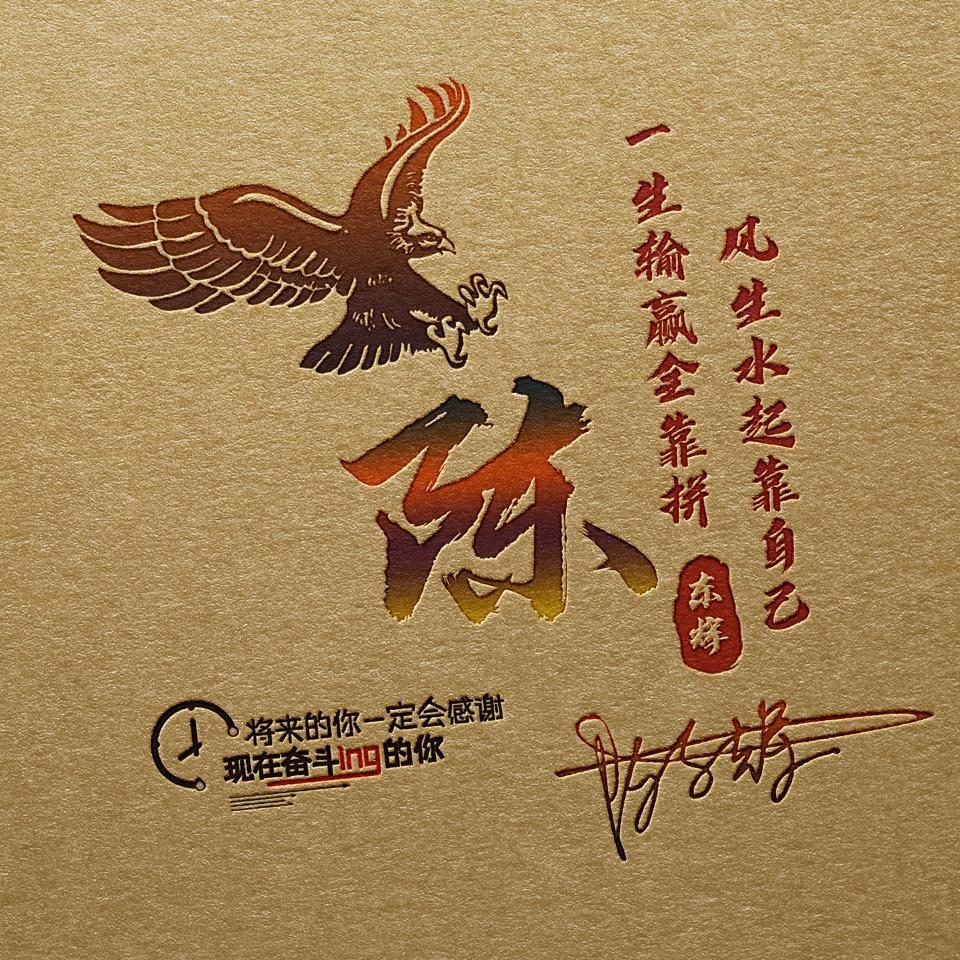 一生输赢全靠拼
风生水起靠自己
陈
东辉
将来的你一定会感谢
现在奋斗ing的你
陈东辉